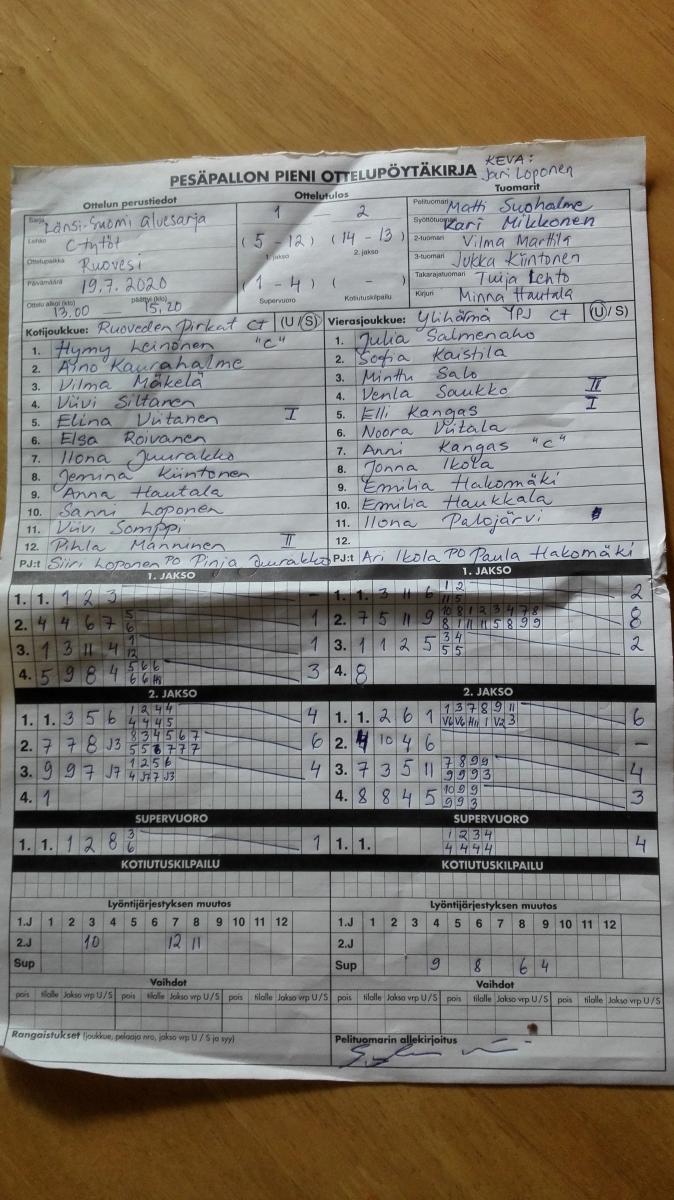 KEVA:
PESÄPALLON PIENI OTTELUPÖYTÄKIRJA Jari Loponen
Ottelun perustiedot Ottelutulos Tuomarit
Sarja Länsi-Suomi aluesarja 1 - 2 Pelituomari Matti Suoholme
Lohko C-tytöt (5 - 12) (14 - 13) Syöttötuomari Kari Mikkonen
1. jakso 2. jakso 2-tuomari Vilma Marttila
Ottelupaikka Ruovesi 3-tuomari Jukka Kiintonen
Päivämäärä 19.7.2020 (1 - 4) ( - ) Takarajatuomari Tuija Lehto
Ottelu alkoi (klo) 13.00 päättyi (klo) 15.20 Supervuoro Kotiutuskilpailu Kirjuri Minna Hautala
Kotijoukkue: Ruoveden Pirkat CT (U/S) Vierasjoukkue: Ylihärmä YPJ CT (U/S)
1. Hymy Leinonen "C" 1. Julia Salmenaho
2. Aino Kaurahalme 2. Sofia Kaistila
3. Vilma Mäkelä 3. Minttu Salo
4. Viivi Siltanen 4. Venla Saukko II
5. Elina Viitanen I 5. Elli Kangas I
6. Elsa Roivanen 6. Noora Viitala
7. Ilona Juurakko 7. Anni Kangas "C"
8. Jemina Kiintonen 8. Jonna Ikola
9. Anna Hautala 9. Emilia Hakomäki
10. Sanni Loponen 10. Emilia Haukkala
11. Viivi Somppi 11. Ilona Palojärvi
12. Pihla Manninen II 12.
PJ:t Siiri Loponen PO Pinja Juurakko PJ:t Ari Ikola PO Paula Hakomäki
1. JAKSO 1. JAKSO
1. 1. 1 2 3 - 1. 1. 3 11 6 1 2 2
11 5
2. 4 4 6 7 5 1 2. 7 5 11 9 10 8 1 2 3 4 7 8 8
6 8 1 11 11 5 8 9 9
3. 1 3 11 4 1 1 3. 1 1 2 5 3 4 2
12 5 5
4. 5 9 8 4 5 6 6 3 4. 8
2. JAKSO 2. JAKSO
1. 1. 3 5 6 1 2 4 4 4 1. 1. 2 6 1 1 3 7 8 9 11 6
4 4 4 5
2. 7 7 8 J3 8 3 4 5 6 7 6 2. 4 10 4 6 -
5 5 6 7 7 7
3. 9 9 7 J7 1 2 5 6 4 3. 7 3 5 11 7 8 9 9 4
4 J7 7 J3 9 9 9 3
4. 1 4. 8 8 4 5 10 9 9 3
9 9 3
SUPERVUORO SUPERVUORO
1. 1. 1 2 8 3 1 1. 1. 1 2 3 4 4
6 4 4 4 4
KOTIUTUSKILPAILU KOTIUTUSKILPAILU
Lyöntijärjestyksen muutos Lyöntijärjestyksen muutos
1.J 1 2 3 4 5 6 7 8 9 10 11 12 1.J 1 2 3 4 5 6 7 8 9 10 11 12
2.J 10 12 11 2.J
Sup Sup 9 8 6 4
Vaihdot Vaihdot
pois tilalle Jakso vrp U/S pois tilalle Jakso vrp U/S pois tilalle Jakso vrp U/S pois tilalle Jakso vrp U/S pois tilalle Jakso vrp U/S pois tilalle Jakso vrp U/S
Rangaistukset (joukkue, pelaaja nro, jakso vrp U / S ja syy) Pelituomarin allekirjoitus